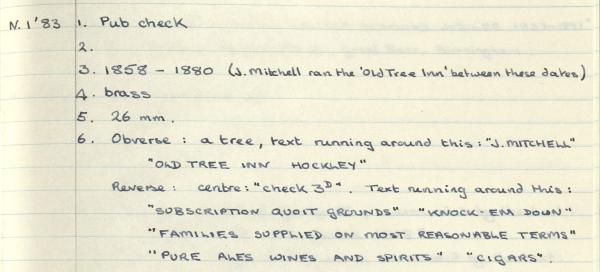 N.1'83 1. Pub check
2.
3. 1858 - 1880 (J. Mitchell ran the 'Old Tree Inn' between these dates)
4. brass
5. 26 mm.
6. Obverse : a tree, text running around this : "J. MITCHELL"
"OLD TREE INN HOCKLEY"
Reverse : centre : "check 3D". Text running around this :
"SUBSCRIPTION QUOIT GROUNDS" "KNOCK-EM DOWN"
"FAMILIES SUPPLIED ON MOST REASONABLE TERMS"
"PURE ALES WINES AND SPIRITS" "CIGARS".